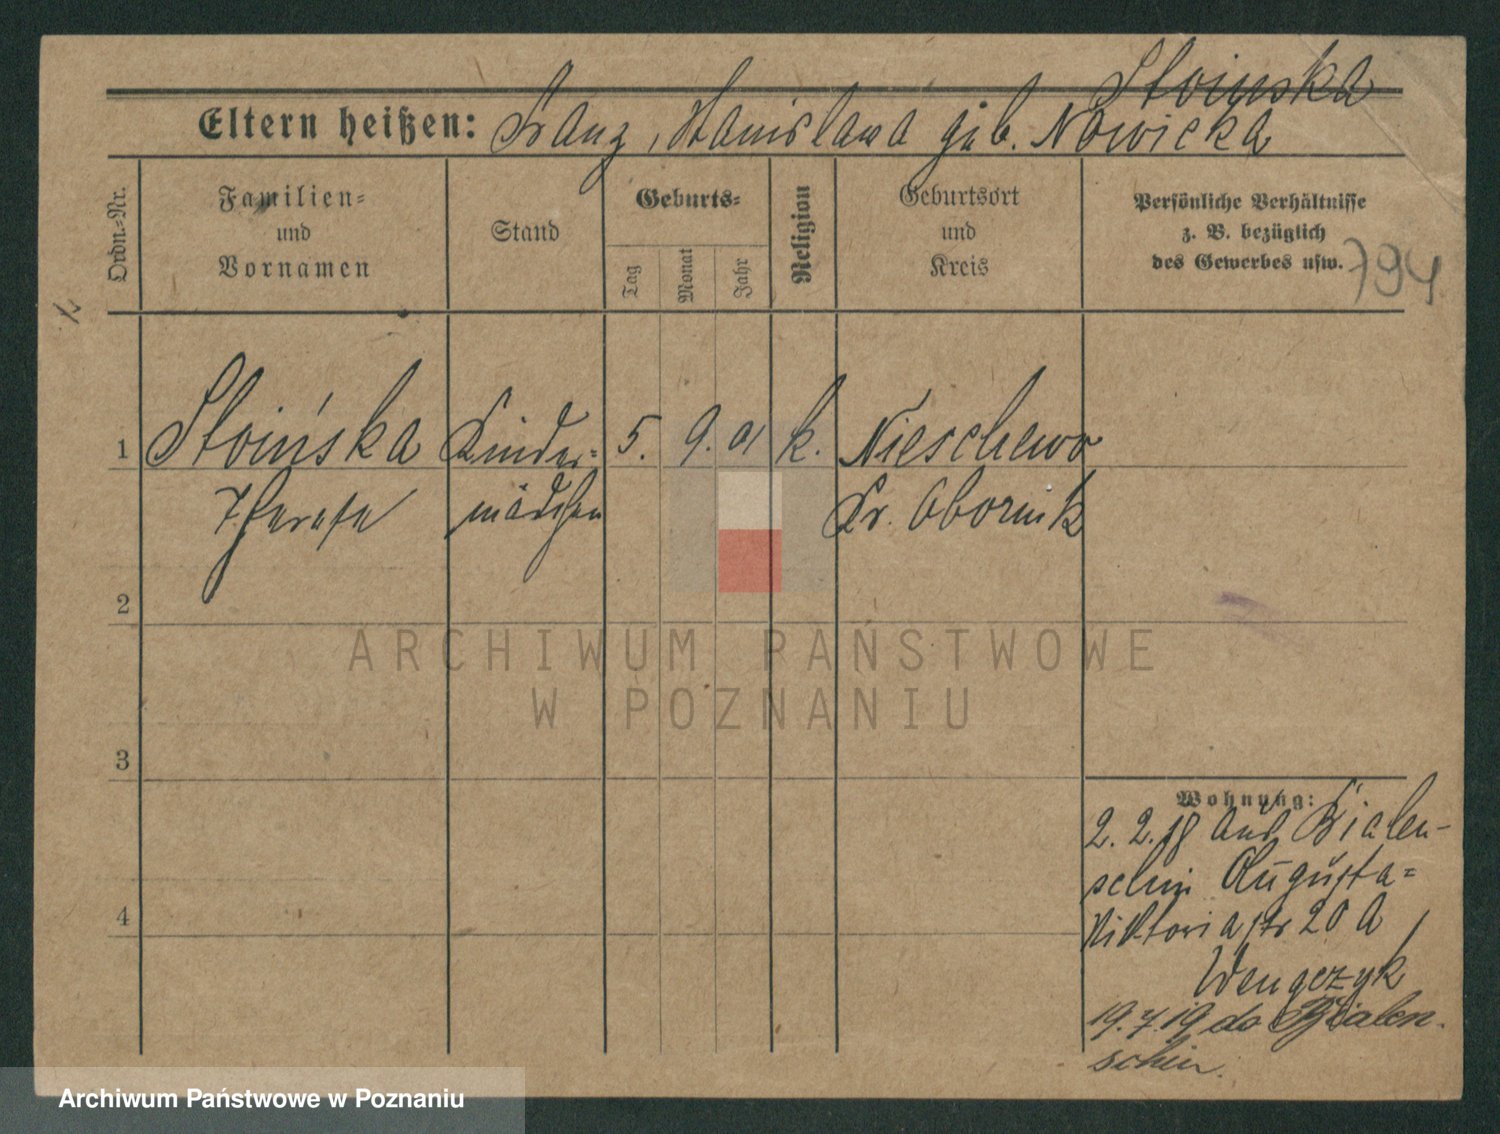 Stoinska
Eltern heißen: Franz, Stanislawa geb. Nowicka
Ordn.-Nr.
Familien-
und
Vornamen
Stand
Geburts-
Tag
Monat
Jahr
Religion
Geburtsort
und
Kreis
Persönliche Verhältnisse
z. B. bezüglich
des Gewerbes usw.
794
1 Stoińska Kinder- 5. 9. 01 k. Nieschewo
Therese mädchen Kr. Obornik
2
ARCHIWUM PAŃSTWOWE
W POZNANIU
3
Wohnung:
2. 2. 18 aus Bialen-
schin Augusta-
4
Viktoriastr 20 A
Wengczyk
19.7.19 do Bialen-
schin.
Archiwum Państwowe w Poznaniu